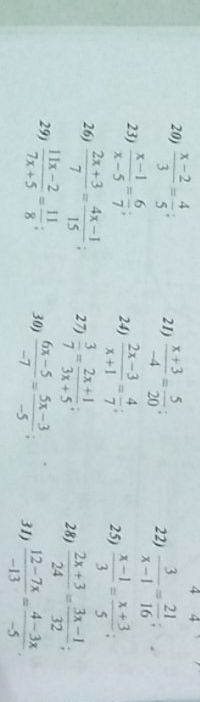 4 4
20) x−2/3 = 4/5; 21) x+3/−4 = 5/20; 22) 3/x−1 = 21/16;
23) x−1/x−5 = 6/7; 24) 2x−3/x+1 = 4/7; 25) x−1/3 = x+3/5
26) 2x+3/7 = 4x−1/15; 27) 3/7 = 2x+1/3x+5; 28) 2x+3/24 = 3x−1/32;
29) 11x−2/7x+5 = 11/8; 30) 6x−5/−7 = 5x−3/−5; 31) 12−7x/−13 = 4−3x/−5.